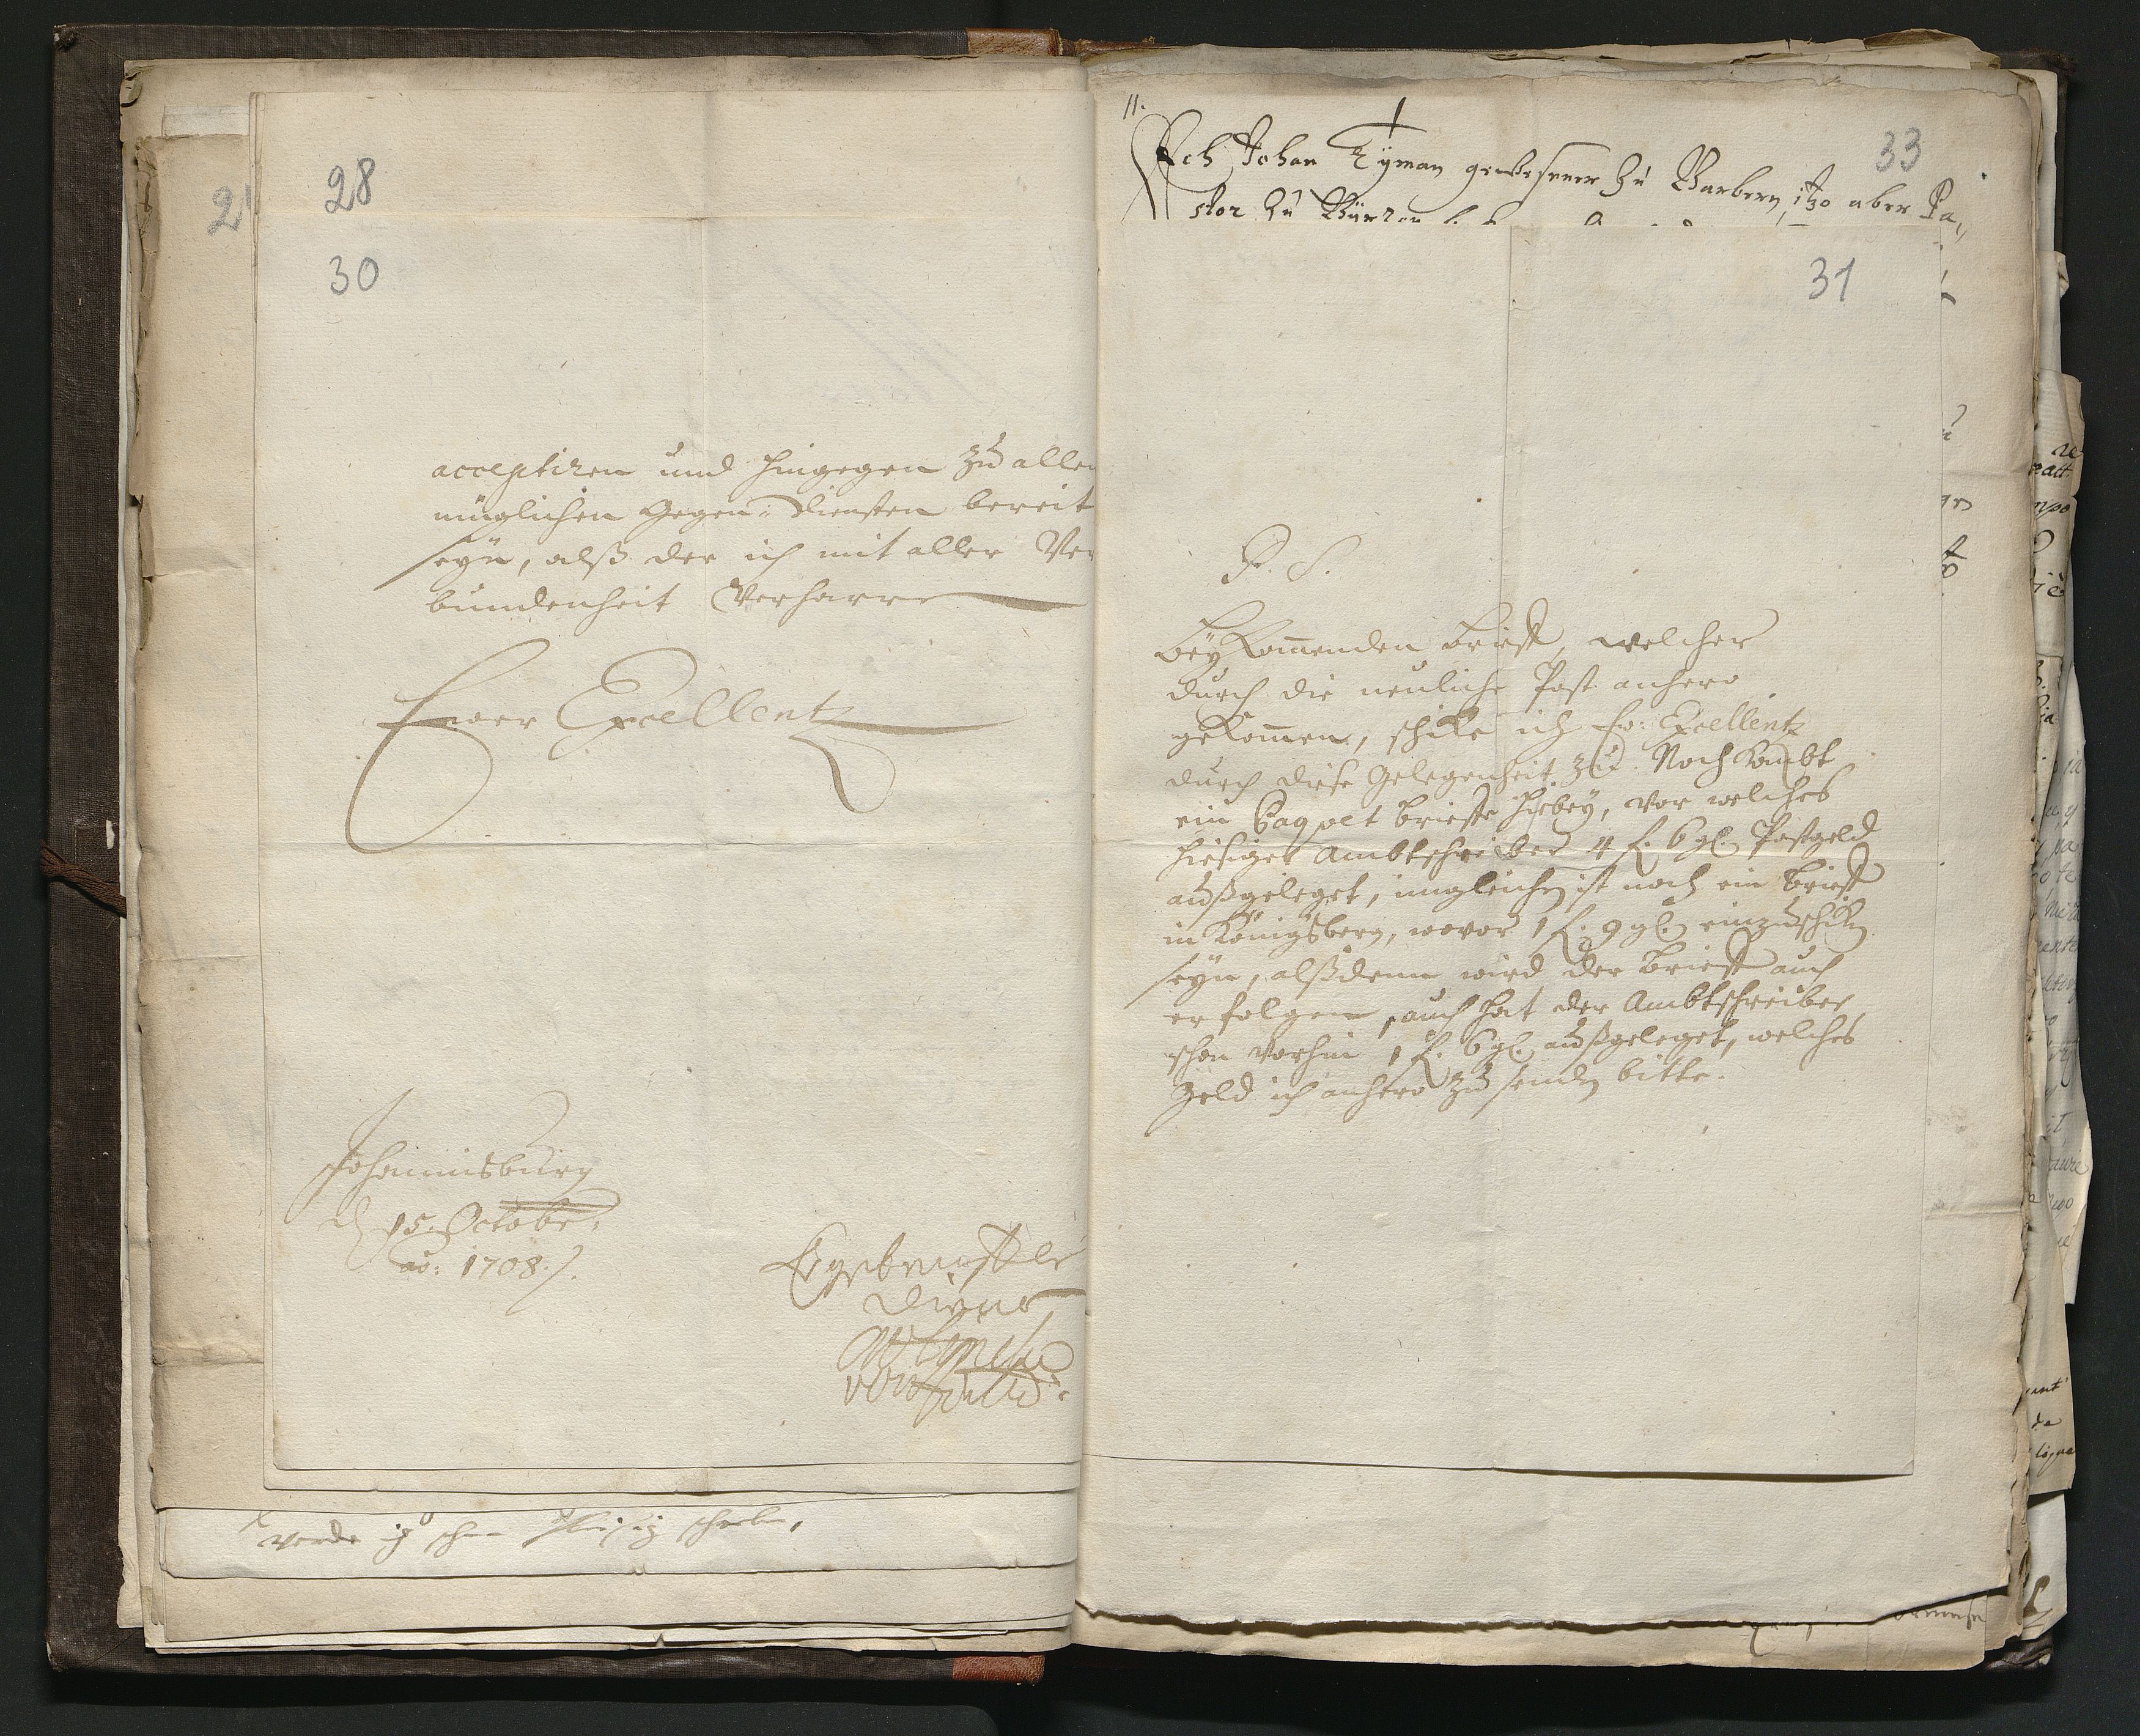 28
30
acceptiren und hingegen zu allen
müglichen Gegen-Diensten bereit
seyn, alß der ich mit aller Ver
bundenheit Verharre
Ewer Excellentz
Johannisburg
d 15. Octobr:
ao: 1708.
Ergebenster
Diener
werde ich schon fleißig
11.
33
Ich Johan Ryman gewesener zu Barbern, itzo aber Pa,,
stor zu
31
P. S.
Beykom̄enden brieff, welcher
durch die neuliche Post anhero
gekom̄en, schike ich Ew: Excellentz
durch diese Gelegenheit zu. Noch kombt
ein Paqvet brieffe hiebey, vor welches
hiesiger Ambtschreiber 4 f. 6 gl. Postgeld
außgeleget, imgleichen ist noch ein Brieff
in Königsberg, wovor 1 f. 9 gl. einzuschiken
seyn, alßdenn wird der Brieff auch
erfolgen, auch hat der Ambtschreiber
schon vorhin 1 f. 6 gl. außgeleget, welches
Geld ich anhero zu senden bitte.